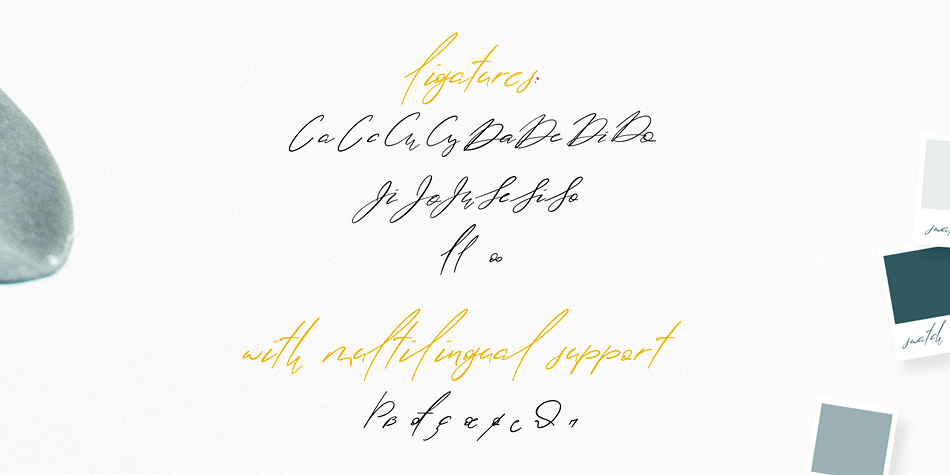 ligatures:
Ca Ce Cu Cy Da De Di Do
Ji Jo Ju Se Si So
ll oo
with multilingual support
swatch